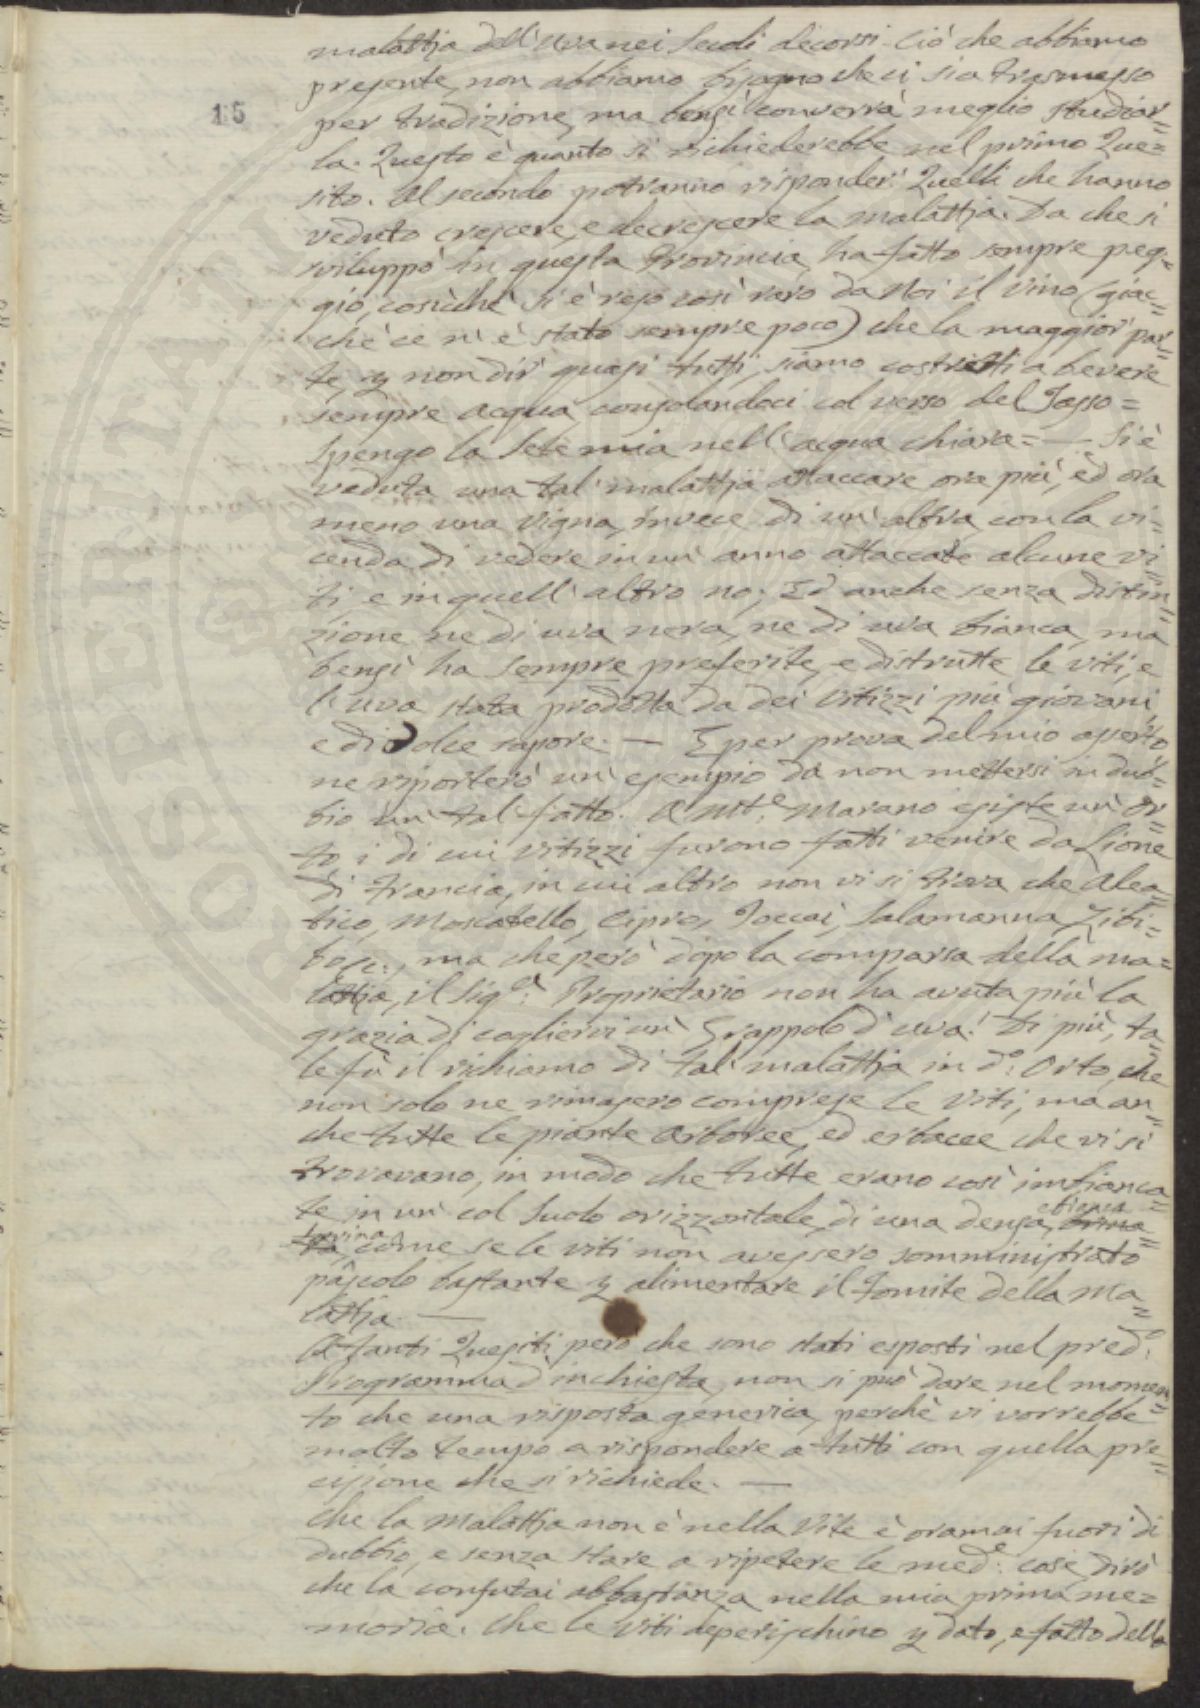 malattia dell'uva nei secoli decorsi. Ciò che abbiamo
presente, non abbiamo bisogno che ci sia trasmesso
15
per tradizione, ma bensì converrà meglio studiar=
la. Questo è quanto si richiederebbe nel primo Que=
sito. Al secondo potranno risponder' Quelli che hanno
veduto crescere, e decrescere la malattia. Da che si
sviluppò in questa Provincia, ha fatto sempre peg=
gio, cosicchè si è reso così raro da Noi il vino (giac=
chè ce n'è stato sempre poco) che la maggior' par=
te, p non dir' quasi tutti, siamo costretti a bevere
sempre acqua, consolandoci col verso del Tasso =
Spengo la sete mia nell'acqua chiara = — Si è
veduta una tal' malattia attaccare ora più, ed ora
meno una vigna, invece di un' altra, con la vi=
cenda di vedere in un' anno attaccate alcune vi=
ti, e in quell'altro no; Ed anche senza distin=
zione ne di uva nera, ne di uva bianca, ma
bensì ha sempre preferite, e distrutte le viti, e
l'uva stata prodotta da dei Vitizzi più giovani
e di dolce sapore. — E per prova del mio aserto
ne riporterò un' esempio da non mettersi in dub=
bio un' tal' fatto. A Mte. Marano esiste un' or=
to, i di cui vitizzi furono fatti venire da Lione
di Francia, in cui altro non vi si trova che Alea=
tico, Moscatello, Cipro, Toccai, Salamanna, Zibi=
bo &c:, ma che però dopo la comparsa della ma=
lattia, il Sigr: Proprietario non ha avuta più la
grazia di cogliervi un' Grappolo d'uva! Di più, ta=
le fù il richiamo di tal' malattia in do: Orto, che
non solo ne rimasero comprese le Viti, ma an=
che tutte le piante arboree, ed erbacee che vi si
trovavano, in modo che tutte erano così imbianca=
te in un' col suolo orizzontale, di una densa,
come se le viti non avessero somministrato
pascolo bastante p alimentare il fomite della Ma=
lattia. —
A tanti Quesiti però che sono stati esposti nel predo:
Programma d'inchiesta, non si può dare nel momen=
to che una risposta generica, perchè vi vorrebbe
molto tempo a rispondere a tutti con quella pre=
cisione che si richiede. —
Che la Malattia non è nella Vite è oramai fuori di
dubbio, e senza stare a ripetere le mede: cose, dirò
che la confutai abbastanza nella mia prima me=
moria. Che le Viti deperischino p dato, e fatto della
PROSPERITATI